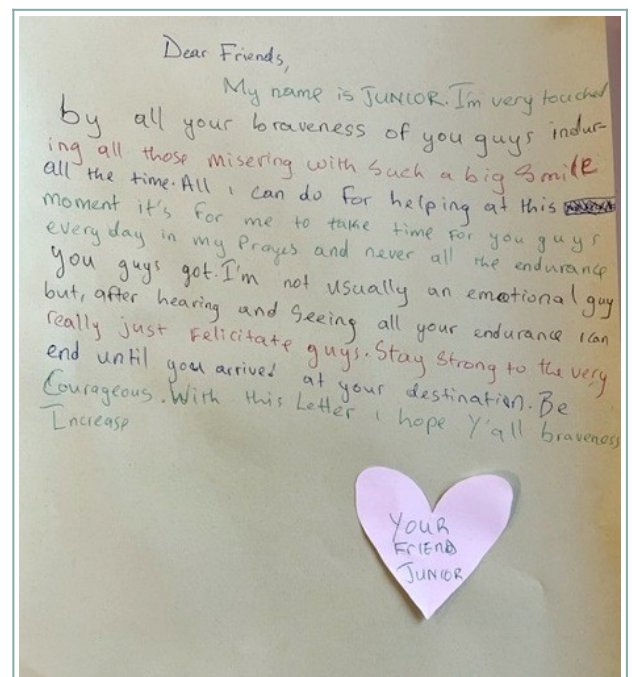 Dear Friends,
My name is JUNIOR. I'm very touched
by all your braveness of you guys indur-
ing all those misering with such a big smile
all the time. All i can do for helping at this
moment it's for me to take time for you guys
every day in my Prayes and never all the endurance
you guys got. I'm not usually an emotional guy
but, after hearing and seeing all your endurance i can
really just felicitate guys. Stay strong to the very
end until you arrived at your destination. Be
Courageous. With this Letter i hope Y'all braveness
Increase
YOUR
FRIEND
JUNIOR